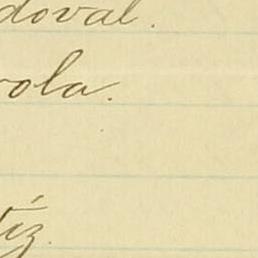 doval.
ola.
tíz.